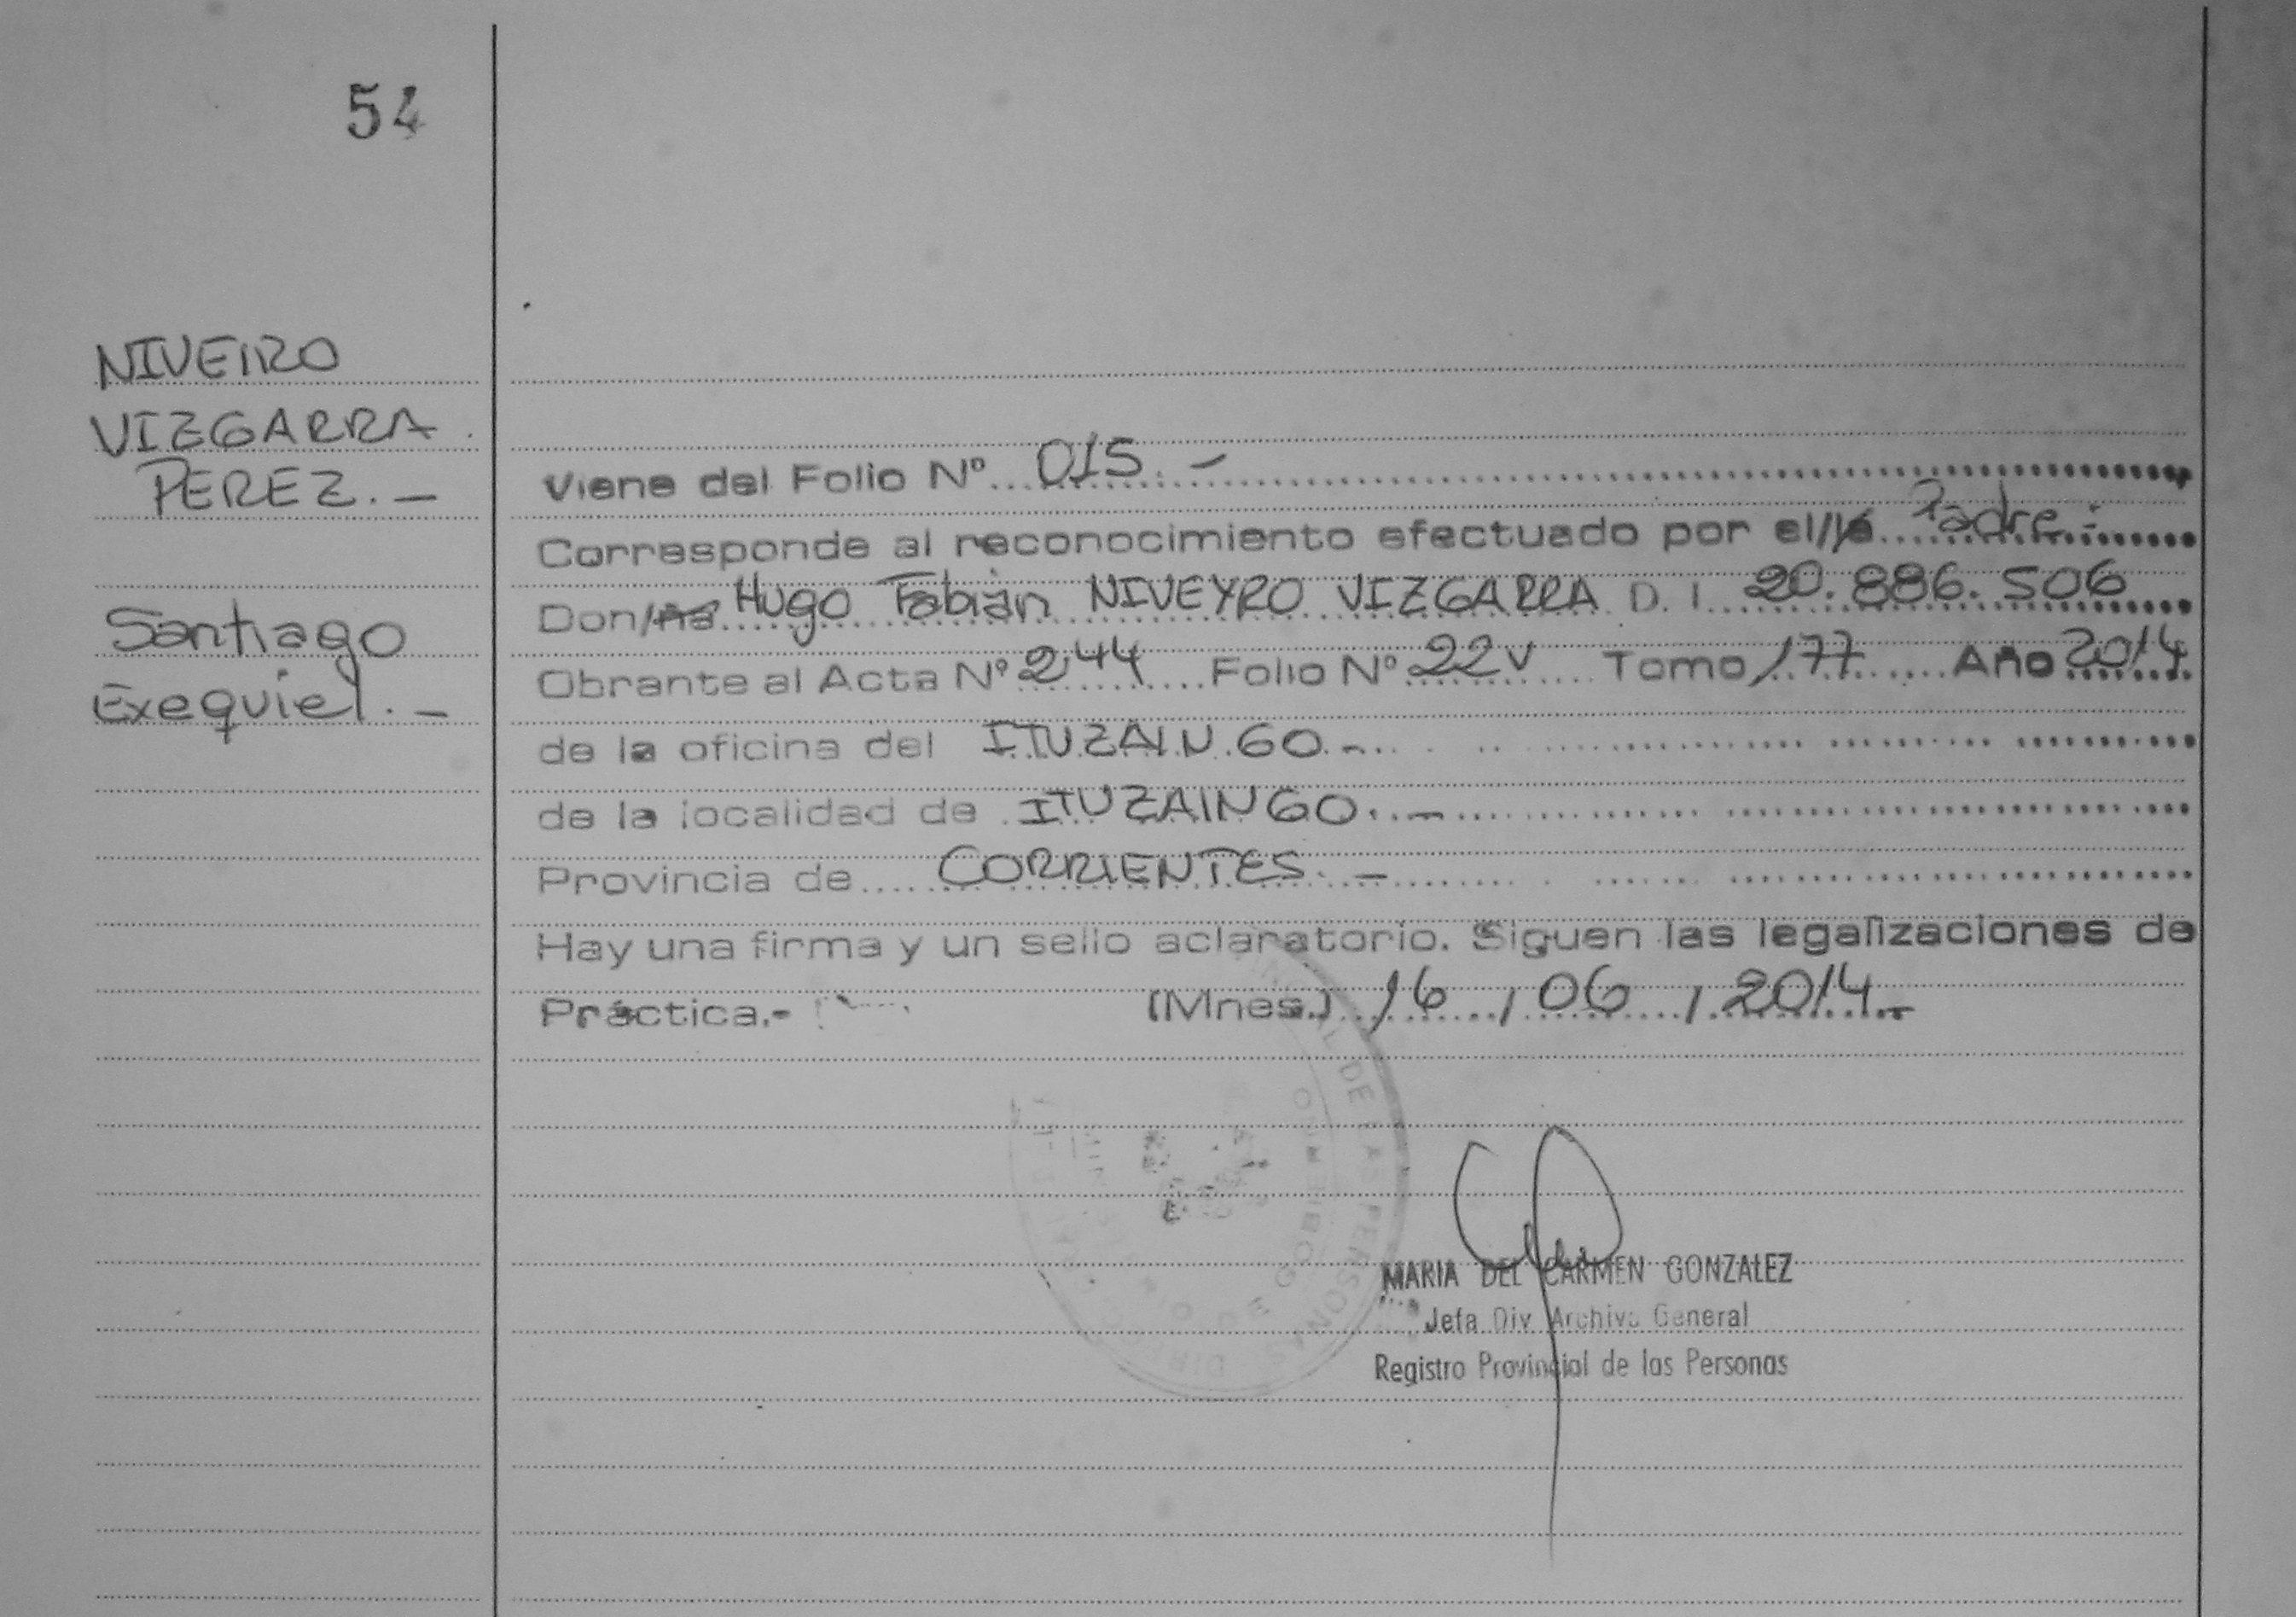 54
NIVEIRO
VIZGARRA
PEREZ.-
Santiago
Exequiel.-
Viene del Folio Nº 015.-
Corresponde al reconocimiento efectuado por el/la Padre.-
Don/ña Hugo Fabián NIVEYRO VIZGARRA D. I. 20.886.506
Obrante al Acta Nº 244 Folio Nº 22V Tomo 177 Año 2014.
de la oficina del ITUZAINGO.-
de la localidad de ITUZAINGO.-
Provincia de CORRIENTES.-
Hay una firma y un sello aclaratorio. Siguen las legalizaciones de
Práctica.- (Mnes.) 16 / 06 / 2014.-
DE LAS PERSONAS
DE GOBIERNO
MARIA DEL CARMEN GONZALEZ
Jefa Div Archivo General
Registro Provincial de las Personas